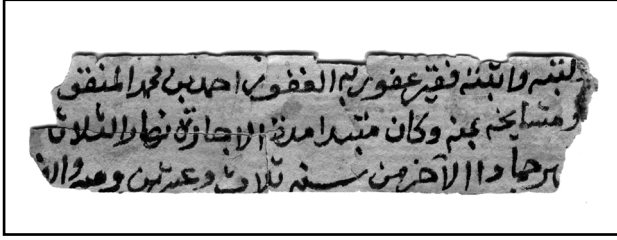 كتبه واثبته فقير عفو ربه الغفور احمد بن محمد المنفق
ومشايخه بمنه وكان مبتدا مدة الاجازة نهار الثلاث
الآخر من سنه ثلاث وعشرين